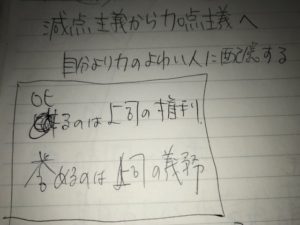 減点主義から加点主義へ
自分より力のよわい人に配慮する
OC
るのは上司の権利
誉めるのは上司の義務